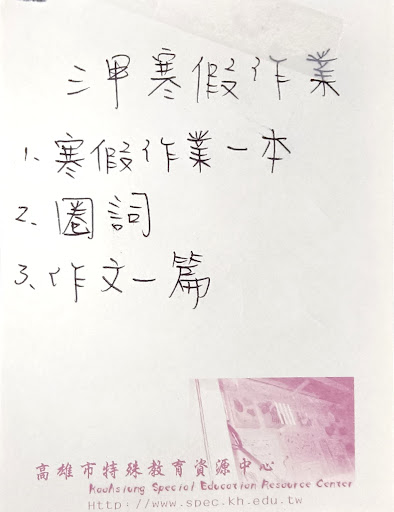 三甲寒假作業
1、寒假作業一本
2、圈詞
3、作文一篇
高雄市特殊教育資源中心
Kaohsiung Special Education Resource Center
Http://www.spec.kh.edu.tw